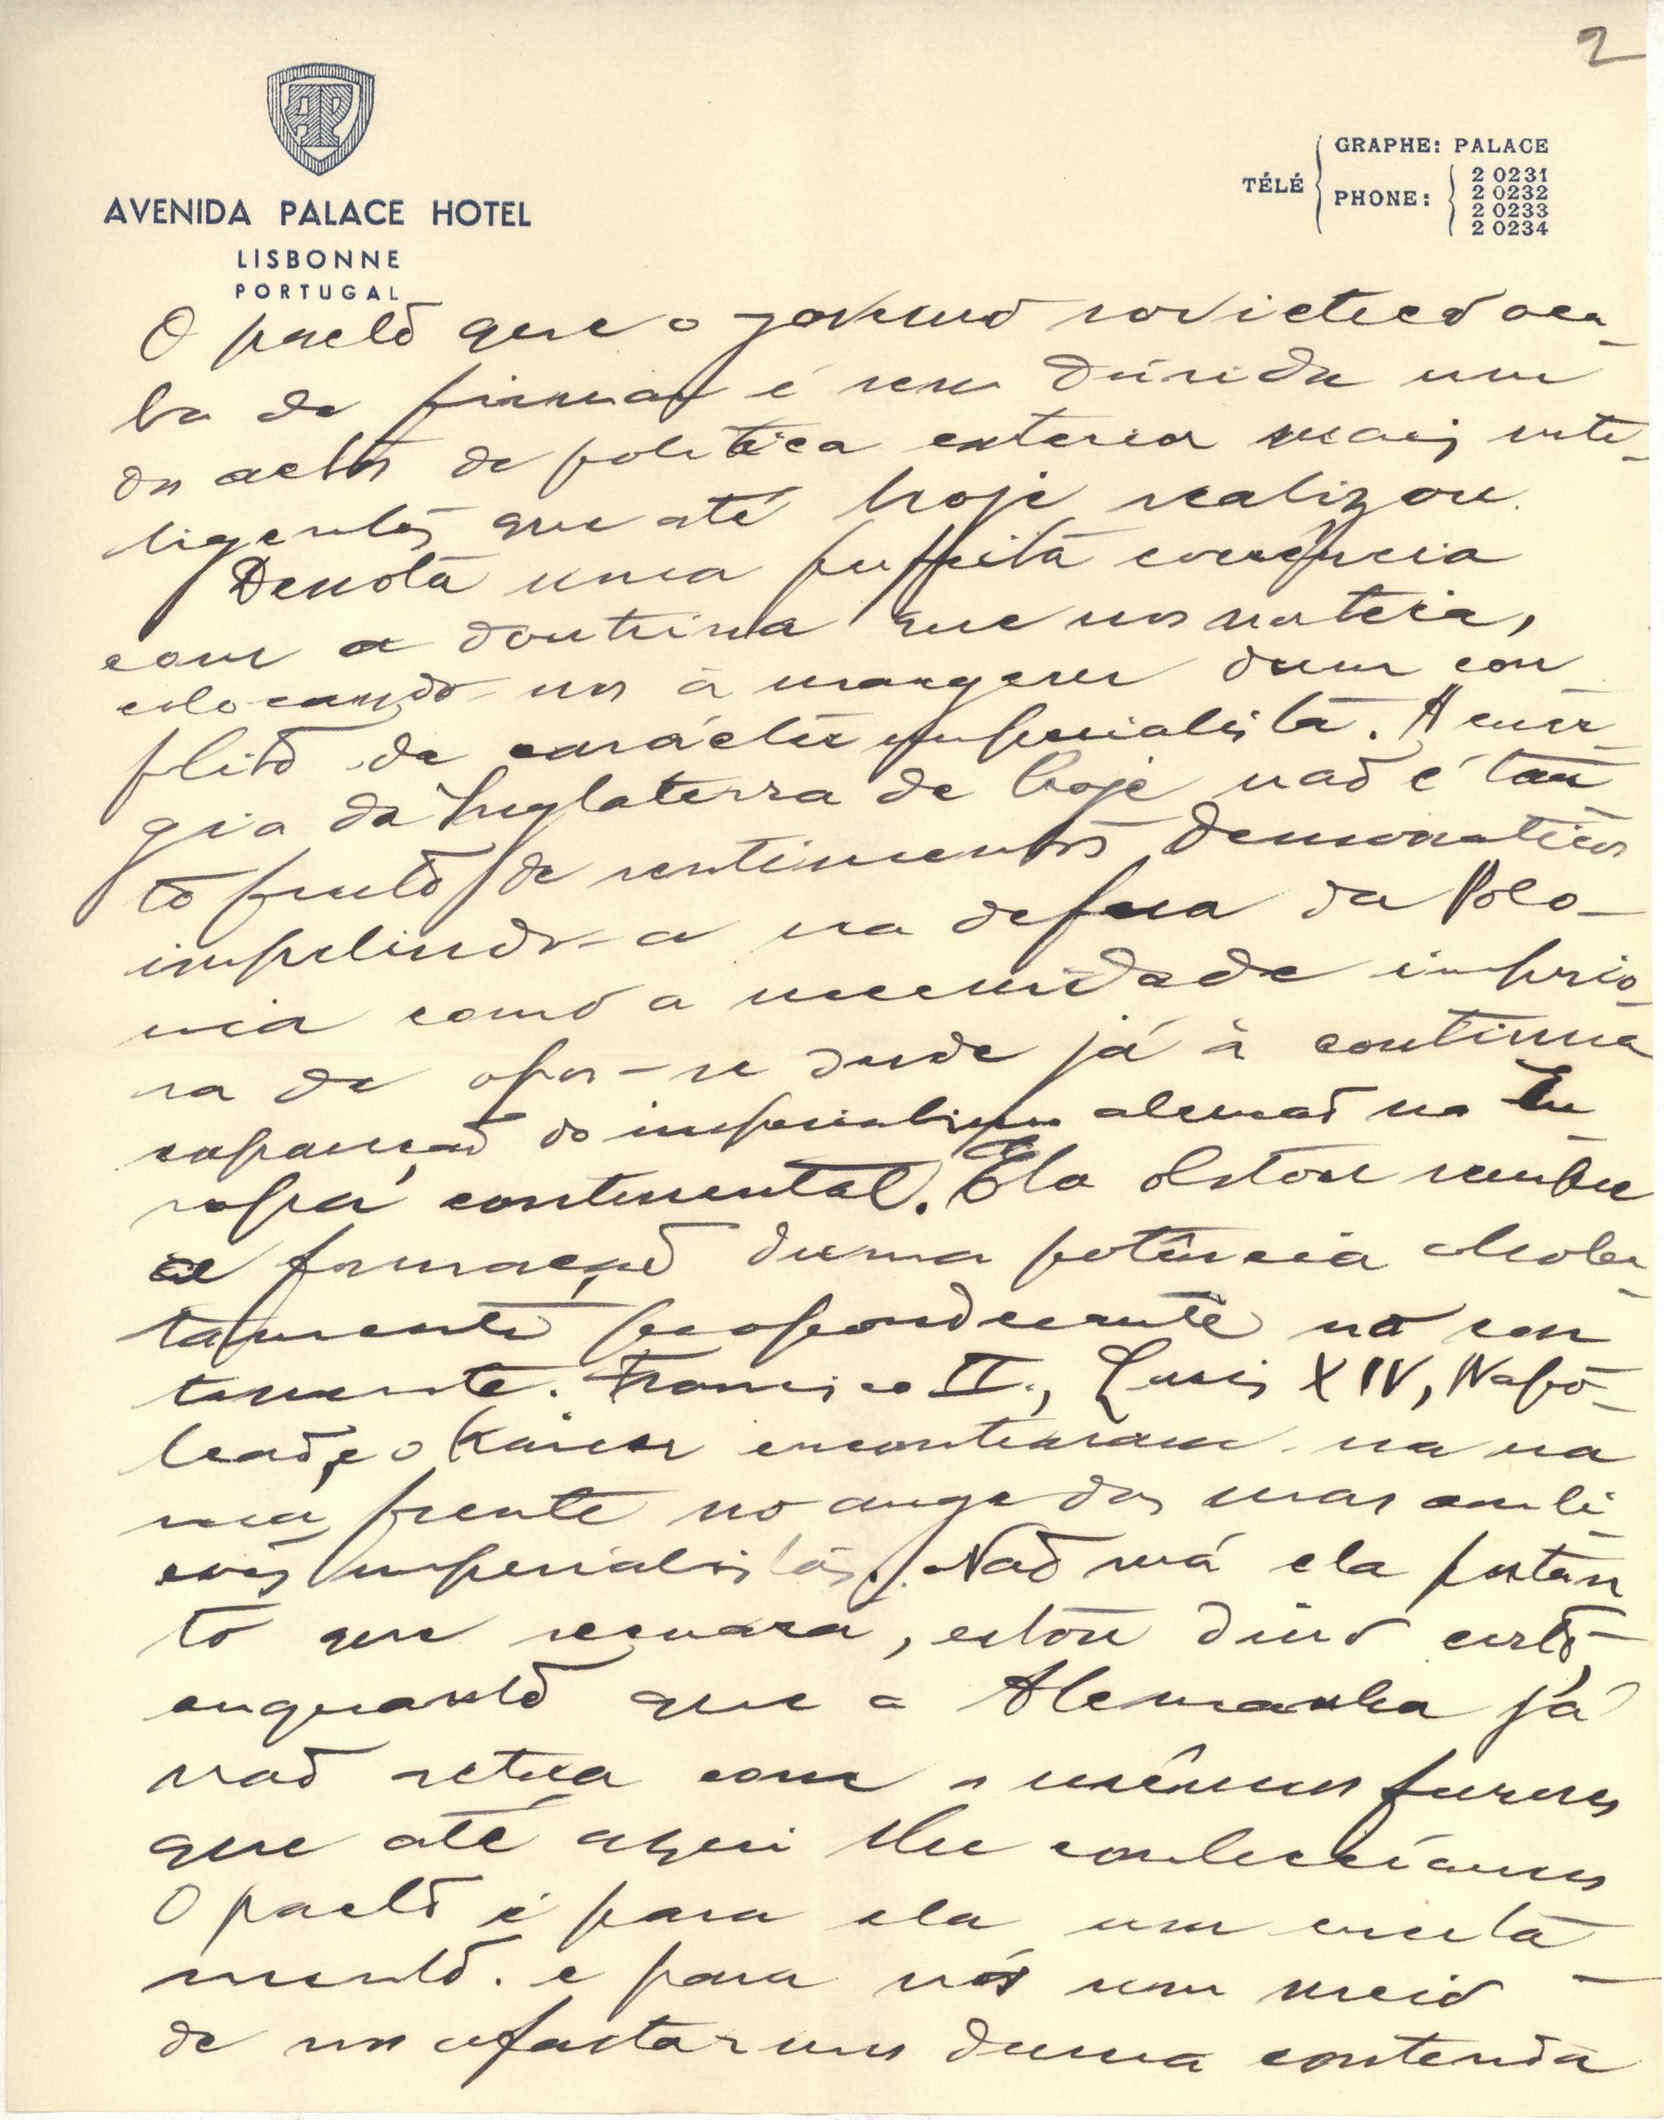 2
AP
AVENIDA PALACE HOTEL
LISBONNE
PORTUGAL
TÉLÉ
GRAPHE: PALACE
PHONE:
2 0231
2 0232
2 0233
2 0234
O pacto que o governo sovietico aca-
ba de firmar é sem dúvida um
dos actos de politica exterior mais inte-
ligentes que até hoje realizou.
Denota uma perfeita coerência
com a doutrina que nos norteia,
colocando-nos à margem dum con
flito de carácter imperialista. A ener-
gia da Inglaterra de hoje não é tan
to fruto de sentimentos democraticos
impelindo-a na defesa da Polo-
nia como a necessidade imperio-
sa de opor-se desde já à continua
expansão do imperialismo alemão na Eu-
ropa continental. Ela obstou sempre
a formação duma potência absolu-
tamente preponderante no con
tinente. Francisco II, Luis XIV, Napo-
leão, e o Kaiser encontraram-na na
sua frente no auge das suas ambi-
ções imperialistas. Não será ela portan
to que recuará, estou disso certo,
enquanto que a Alemanha já
não actua com os mesmos furores
que até aqui lhe conheciamos
O pacto é para ela um
e para nós um meio
de nos afastarmos duma contenda